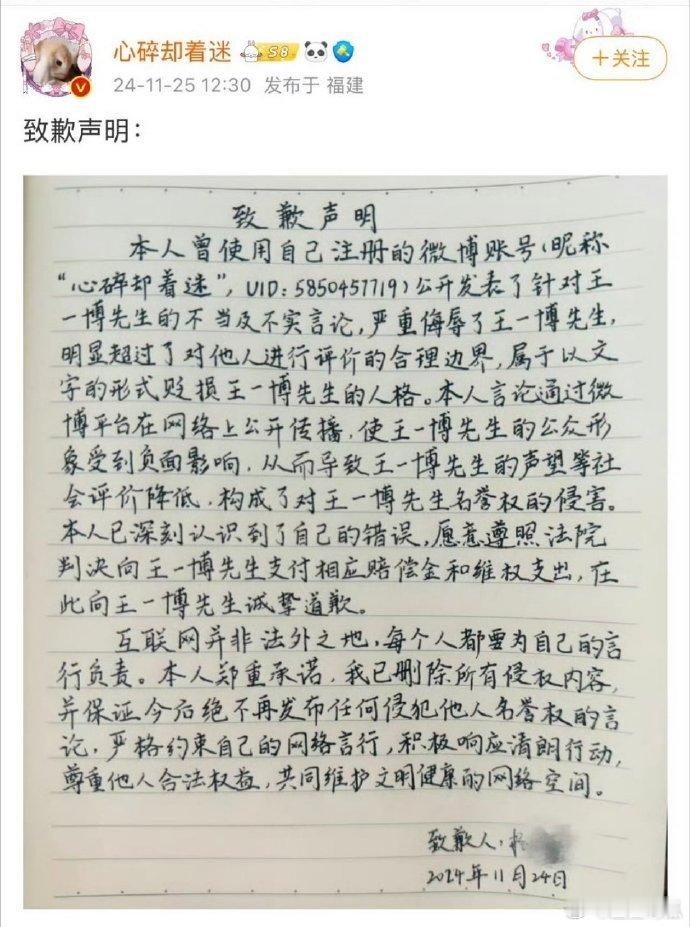 心碎却着迷 S8
24-11-25 12:30 发布于 福建
+关注
致歉声明：
致歉声明
本人曾使用自己注册的微博账号（昵称
“心碎却着迷”，UID：5850457719）公开发表了针对王
一博先生的不当及不实言论，严重侮辱了王一博先生，
明显超过了对他人进行评价的合理边界，属于以文
字的形式贬损王一博先生的人格。本人言论通过微
博平台在网络上公开传播，使王一博先生的公众形
象受到负面影响，从而导致王一博先生的声望等社
会评价降低，构成了对王一博先生名誉权的侵害。
本人已深刻认识到了自己的错误，愿意遵照法院
判决向王一博先生支付相应赔偿金和维权支出，在
此向王一博先生诚挚道歉。
互联网并非法外之地，每个人都要为自己的言
行负责。本人郑重承诺，我已删除所有侵权内容，
并保证今后绝不再发布任何侵犯他人名誉权的言
论，严格约束自己的网络言行，积极响应清朗行动，
尊重他人合法权益，共同维护文明健康的网络空间。
致歉人：
2024年11月24日